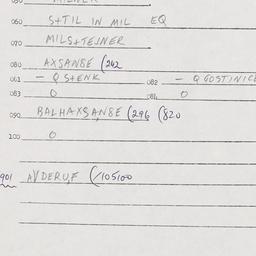 060 S+TIL IN MIL EQ
070 MILS+TEJNER
080 AXSANBE (242
081 - Q S+ENK 082 - Q GOSTINICE
083 0 084 0
090 BALHAXSANBE (296 (820
100 0
901 AVDERUF (/105100